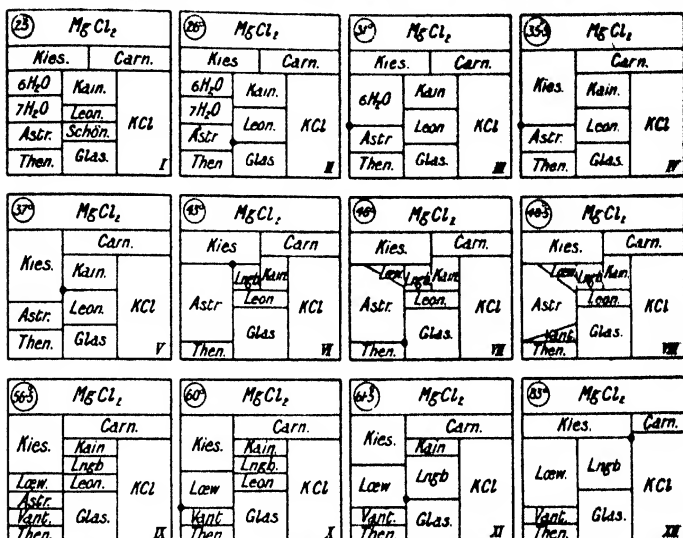 25° MgCl₂
Kies. Carn.
6H₂O Kain.
7H₂O Leon.
Astr. Schön. KCl
Then. Glas. I
MgCl₂
Kies Carn.
6H₂O Kain.
7H₂O
Astr Leon. KCl
Then Glas II
31° MgCl₂
Kies. Carn.
6H₂O Kain
Leon KCl
Astr
Then. Glas III
MgCl₂
Carn.
Kies. Kain.
Leon. KCl
Astr.
Then. Glas. IV
37° MgCl₂
Carn.
Kies. Kain.
Leon. KCl
Astr.
Then. Glas V
43° MgCl₂
Kies Carn
Lngb Kain
Astr Leon
Glas KCl
Then. VI
46° MgCl₂
Kies. Carn.
Lœw. Lngb Kain
Astr. Leon.
Glas. KCl
Then. VII
MgCl₂
Kies. Carn.
Lœw. Lngb Kain.
Astr Leon.
Glas. KCl
Vant.
Then. VIII
MgCl₂
Carn.
Kies. Kain
Lngb
Lœw. Leon. KCl
Astr.
Vant. Glas.
Then. IX
60° MgCl₂
Carn.
Kies. Kain.
Lngb.
Lœw Leon KCl
Vant Glas
Then. X
MgCl₂
Carn.
Kies. Kain
Lœw Lngb KCl
Vant. Glas.
Then. XI
83° MgCl₂
Kies. Carn.
Lœw. Lngb KCl
Vant. Glas.
Then. XII